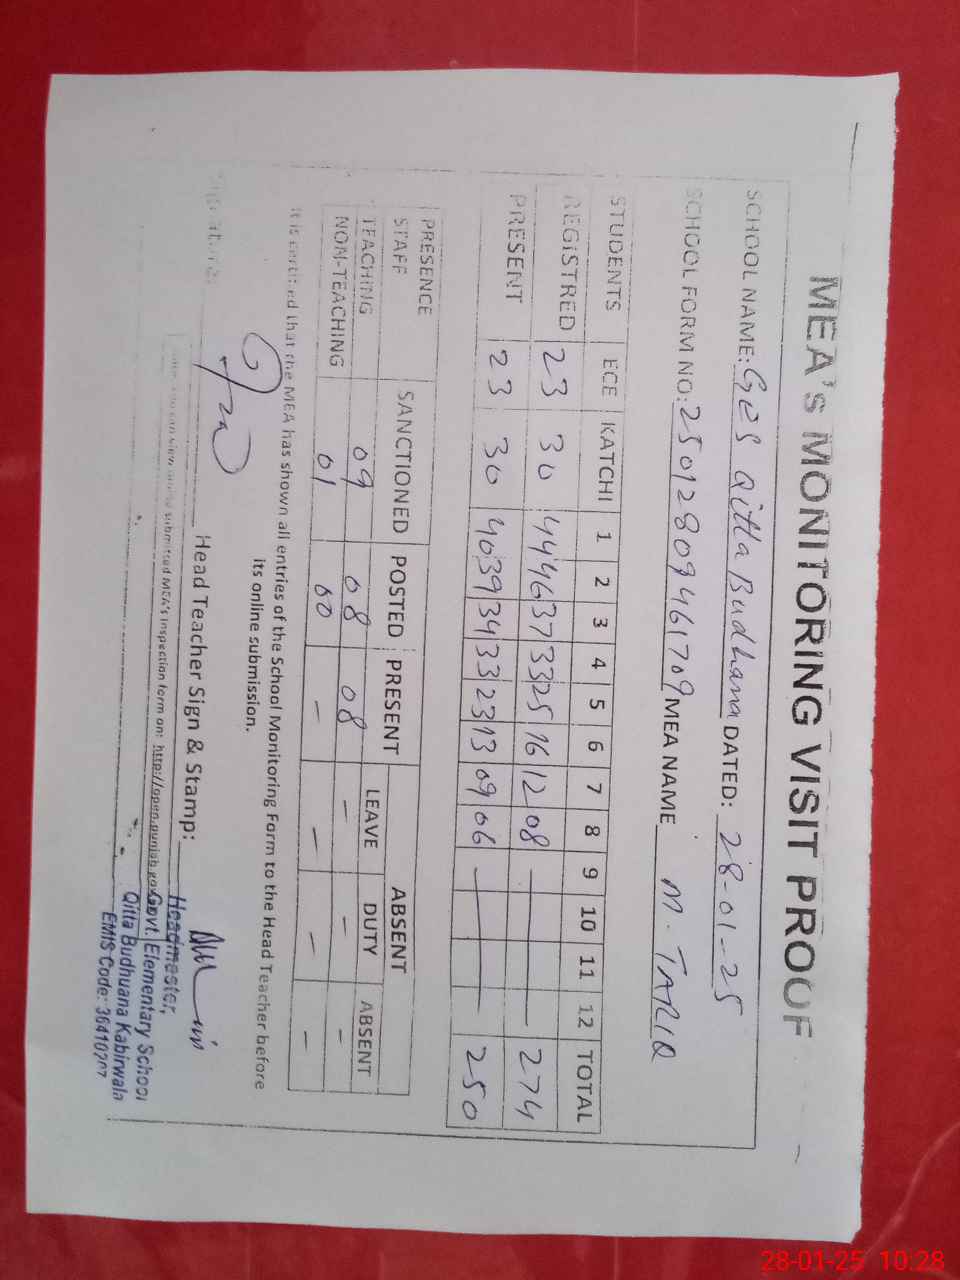 MEA's MONITORING VISIT PROOF
SCHOOL NAME: GES Qitta Budhana DATED: 28-01-25
SCHOOL FORM NO: 25012809461709 MEA NAME M. TARIQ
STUDENTS ECE KATCHI 1 2 3 4 5 6 7 8 9 10 11 12 TOTAL
REGISTRED 23 30 44 46 37 33 25 16 12 08 — — 274
PRESENT 23 30 40 39 34 33 23 13 09 06 — — 250
PRESENCE STAFF SANCTIONED POSTED PRESENT ABSENT
LEAVE DUTY ABSENT
TEACHING 09 08 08 — — —
NOM-TEACHING 01 00 — — — —
It is certified that the MEA has shown all entries of the School Monitoring Form to the Head Teacher before
its online submission.
Signature: Head Teacher Sign & Stamp:
can view submitted MEA's Inspection form on: http://open.punjab.gov
Headmaster,
Govt. Elementary School
Qitta Budhuana Kabirwala
EMIS Code: 36410207
28-01-25 10:28